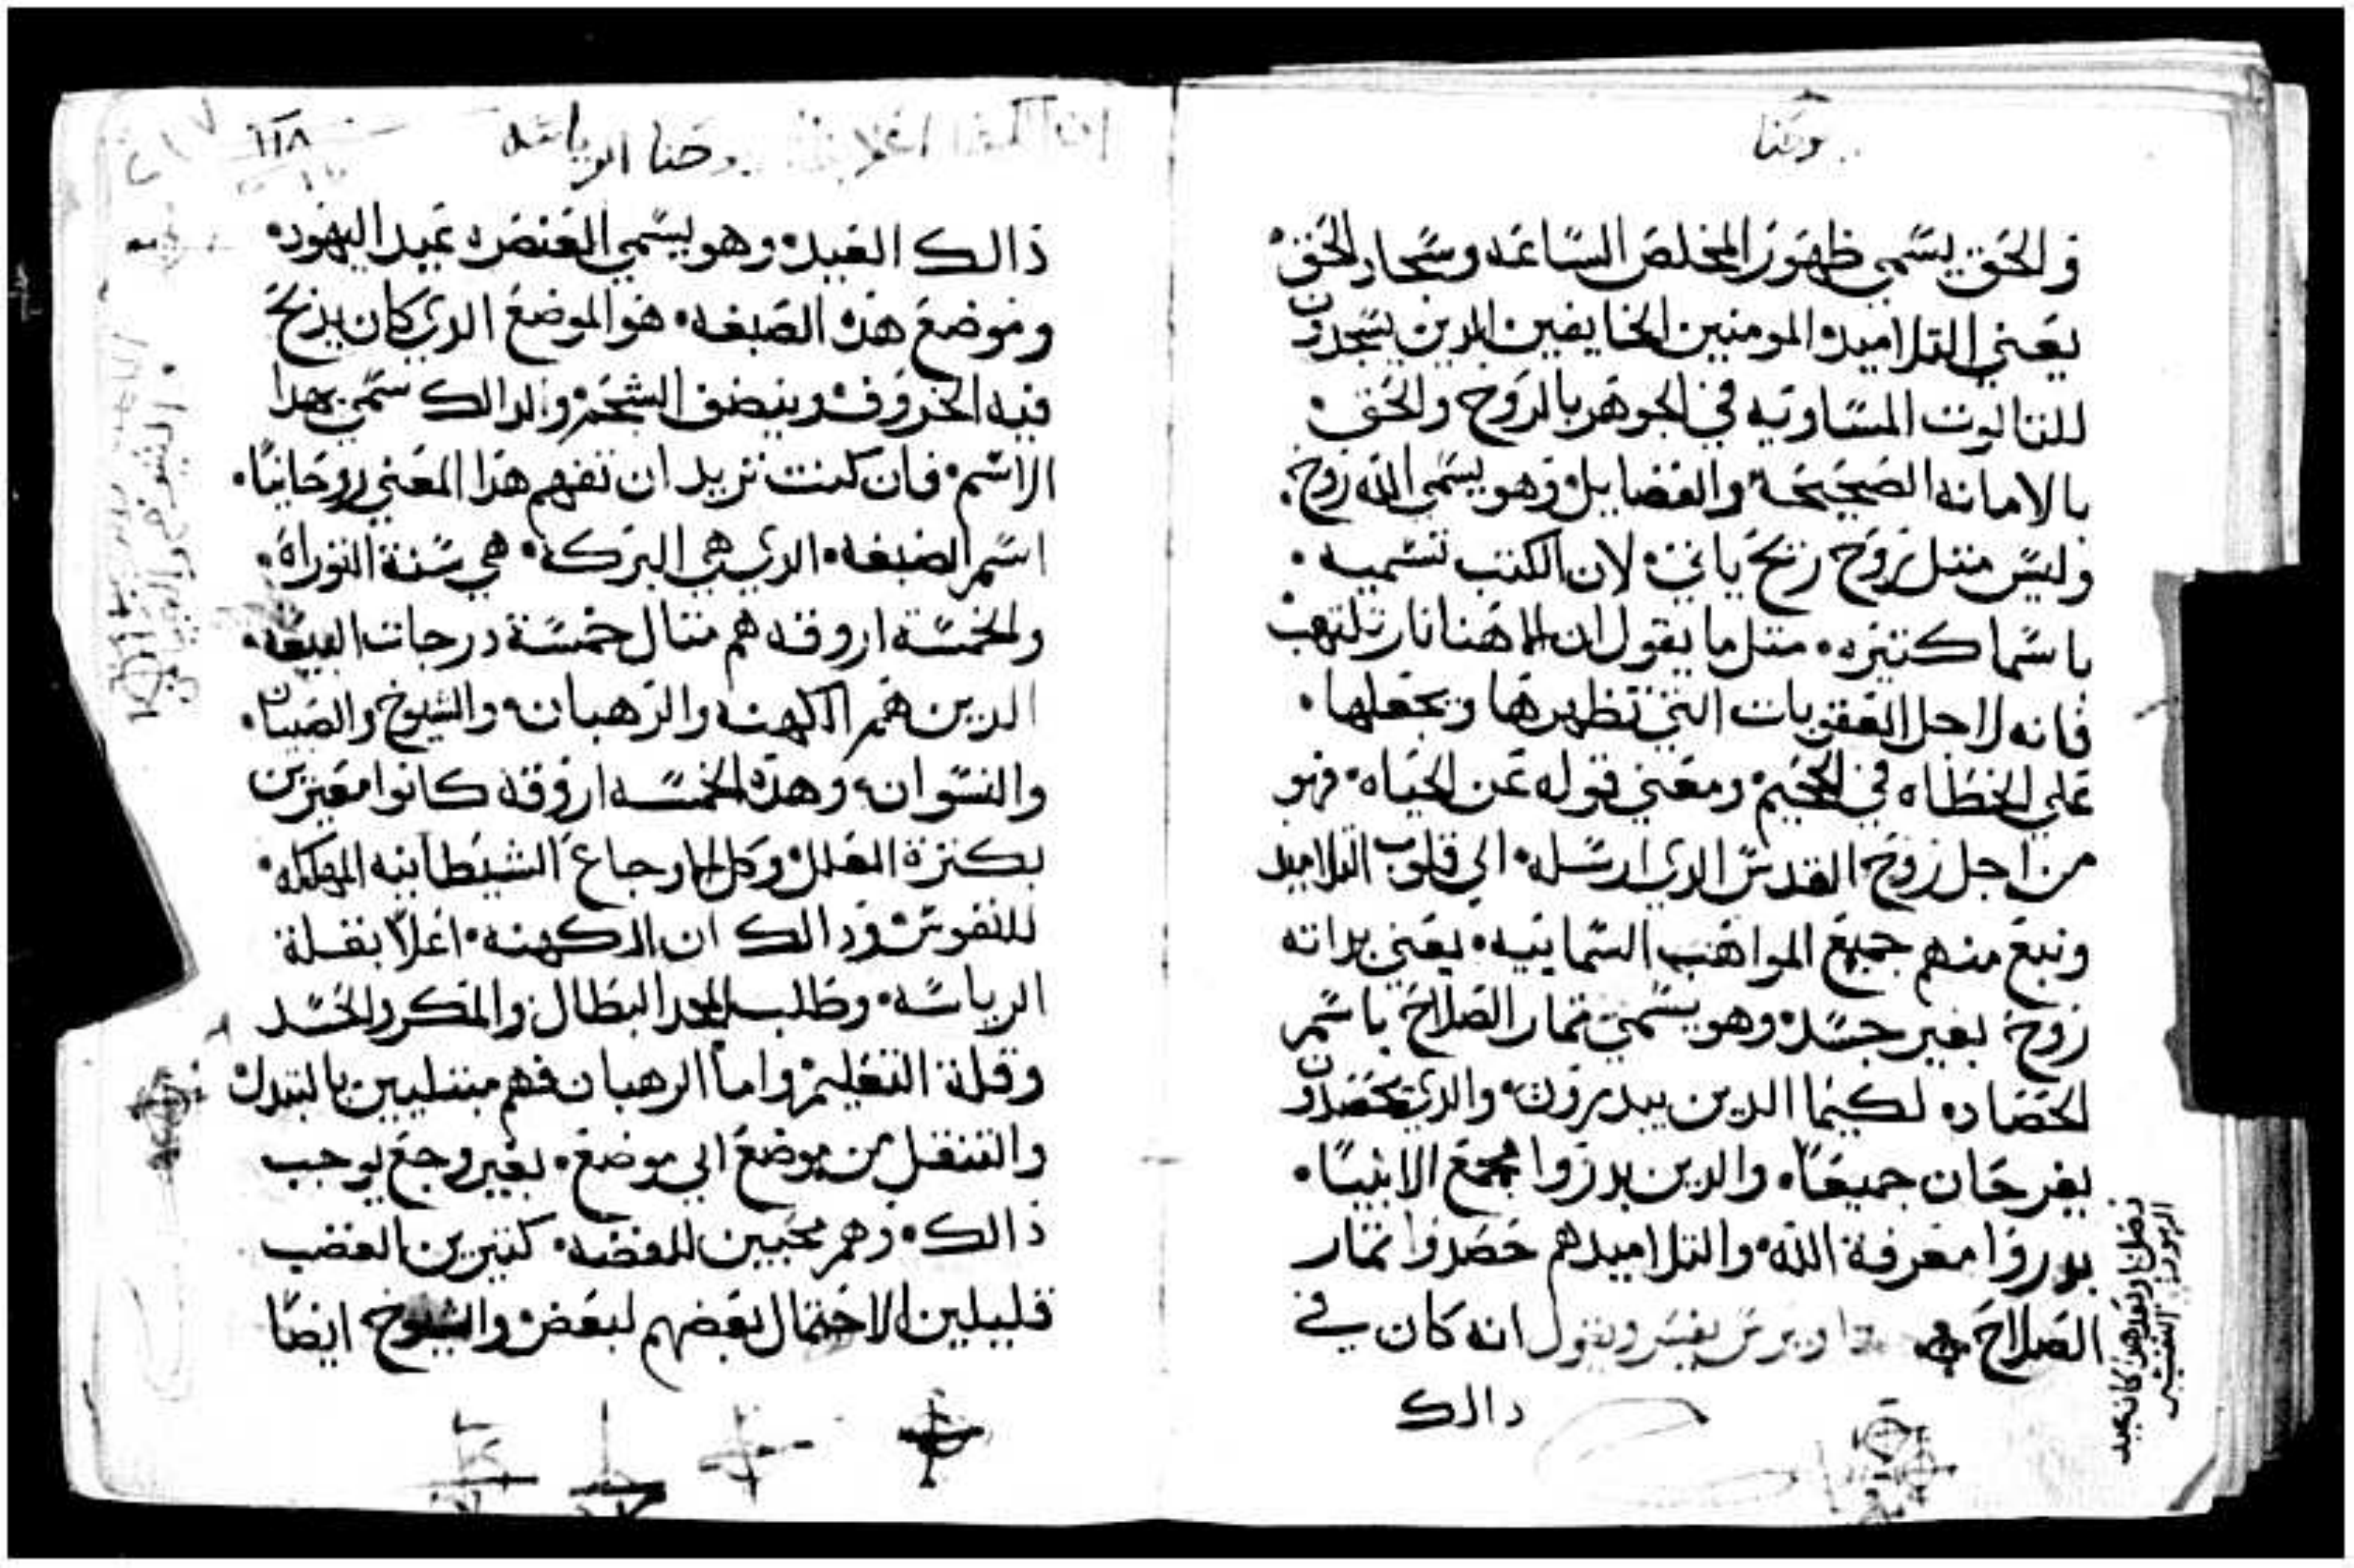 وحنا
والحق يسمي ظهور المخلص الساعه وسجاد الحق
يعني التلاميد المومنين الخايفين الدين يسجدون
للتالوت المساويه في الجوهر بالروح والحق
بالامانه الصحيحه والفضايل وهو يسمي الله روح
وليس متل روح ريح ياتي لان الكتب تسميه
باسما كتيره متل ما يقول ان الاهنا نار تلتهب
فانه لاجل العقوبات التي تظهرها ويجعلها
علي الخطاه في الجحيم ومعني قوله عن الحياه فهو
من اجل روح القدس الدي ارسله الي قلوب التلاميد
ونبع منهم جميع المواهب السماييه يعني بداته
روح بغير جسد وهو يسمي تمار الصلاح باسم
الحصاده لكيما الدين يبدرون والدي يحصدون
يفرحان جميعا والدين بدروا مجمع الانبيا
بدروا معرفة الله والتلاميدهم حصدوا تمار
الصلاح يفسر ويقول انه كان في
دالك
١١٨
وحنا الرياسه
دالك العيد وهو يسمي العنصره عيد اليهود
وموضع هده الصبغه هو الموضع الدي كان يدبح
فيه الخروف وينضف الشحم ولدالك سمي بهدا
الاسم فان كنت تريد ان تفهم هدا المعني روحانيا
اسم الصبغه الدي هي البركه هي سنة التوراه
والخمسة اروقه هم متال خمسة درجات البيعه
الدين هم الكهنه والرهبان والشيوخ والصبيان
والنسوان وهده الخمسه اروقه كانوا معتزين
بكترة العلل وكل الاوجاع الشيطانيه المهلكه
للنفوس ودالك ان الكهنه اعلا بقلة
الرياسه وطلب المجد البطال والمكر والحسد
وقلة التعليم واما الرهبان فهم مبتليين بالتبدل
والتنقل من موضع الي موضع بغير وجع يوجب
دالك وهم محبين للفضه كتيرين الغضب
قليلين الاحتمال بعضهم لبعض والشيوخ ايضا